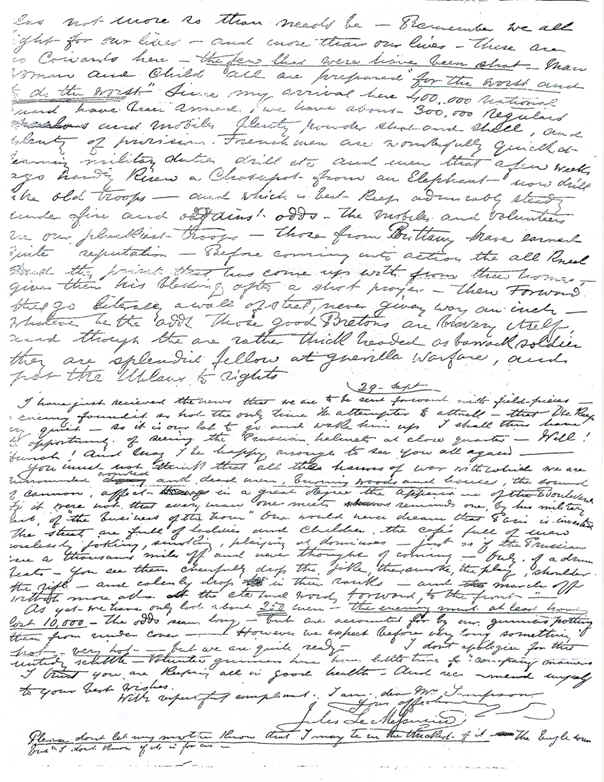 less not more so than needs be — Remember we all
fight for our lives — and more than our lives — there are
no Cowards here — the few that were have been shot — Man
Woman and Child all are prepared "for the worst and
to do the worst" Since my arrival here 400,000 National
Guard have been armed, we have about 300,000 Regulars
and Mobiles Plenty, powder shot and shell, and
plenty of provision. Frenchmen are wonderfully quick at
learning military duties drill etc and men that a few weeks
ago hardly knew a Chassepot from an Elephant — now drill
like old troops — and which is best keep admirably steady
under fire and against odds — the Mobiles and Volunteers
are our pluckiest troops — those from Brittany have earned
quite reputation — Before coming into action the all kneel
the priest that has come up with from their homes
gives them his blessing after a short prayer — then Forward
they go literaly a wall of steel, never giving way an inch —
Whatever be the odds Those good Bretons are bravery itself,
and though the are rather thick headed as barrack soldier
they are splendid fellow at guerilla warfare, and
put the Uhlans to rights
29 - Sept
I have just recieved the news that we are to be sent forward with field-pieces —
enemy found it so hot the only time He attempted to attack — that He keep
very quiet — so it is our lot to go and wake him up I shall thus have
opportunity of seeing the Prussian helmets at close quarter — Well!
! And may I be happy enough to see you all again —
You must not think that all the horrors of war with which we are
surrounded and dead men, burning woods and houses, the sound
of cannon, affect in a great degree the appearance of the Boulevards
if it were not that every man one meets reminds one, by his military
, of the business of the hour one would never dream that Paris is invested
the street are full of ladies and children the cafés full of men
smoking, playing at dominoes — just as if the Prussian
were a thousand mile off and never thought of coming — But if a drum
beats — You see them carefully drop the joke, the smoke, the play, shoulder
the rifle — and calmly drop in their ranks — and march off
without more ado at the eternal word, Forward, to the front —
As yet we have only lost about 250 men — the enemy must at least have
lost 10,000 — the odds seem long — but are accounted for by our gunners potting
them from under cover — However we expect before very long something
hot, very hot — but we are quite ready I don't apologise for this
untidy scribble — Volunteer gunners have
I trust you are keeping all in good health — And recommend myself
to your best wishes.
With respectful compliment. I am, dear Mr. Simpson
Yrs affectionately
Jules
Please dont let my mother know that I may be in the thickest of it — the Eagle
I dont know if it is for us —